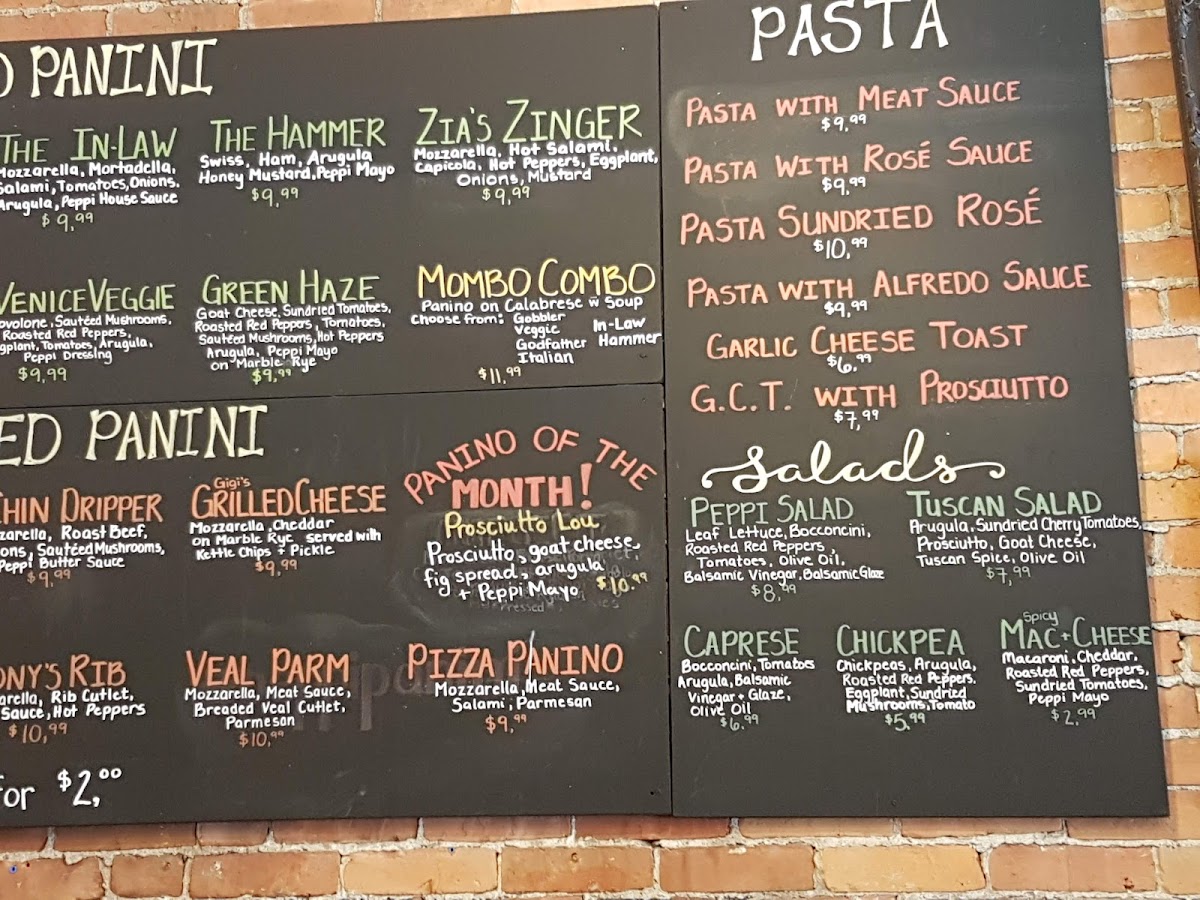 PANINI
THE IN-LAW
Mozzarella, Mortadella,
Salami, Tomatoes, Onions,
Arugula, Peppi House Sauce
$9,99
THE HAMMER
Swiss, Ham, Arugula
Honey Mustard, Peppi Mayo
$9,99
ZIA'S ZINGER
Mozzarella, Hot Salami,
Capicola, Hot Peppers, Eggplant,
Onions, Mustard
$9,99
VENICE VEGGIE
ovolone, Sautéed Mushrooms,
Roasted Red Peppers,
ggplant, Tomatoes, Arugula,
Peppi Dressing
$9,99
GREEN HAZE
Goat Cheese, Sundried Tomatoes,
Roasted Red Peppers, Tomatoes,
Sautéed Mushrooms, Hot Peppers
Arugula, Peppi Mayo
on Marble Rye
$9,99
MOMBO COMBO
Panino on Calabrese w Soup
Choose from: Gobbler
Veggie In-Law
Godfather Hammer
Italian
$11,99
ED PANINI
CHIN DRIPPER
zarella, Roast Beef,
ons, Sautéed Mushrooms,
Peppi Butter Sauce
$9,99
Gigi's
GRILLED CHEESE
Mozzarella, Cheddar
on Marble Rye served with
Kettle Chips + Pickle
$9,99
PANINO OF THE
MONTH!
Prosciutto Lou
Prosciutto, goat cheese,
fig spread, arugula
+ Peppi Mayo $10.99
ONY'S RIB
arella, Rib Cutlet,
Sauce, Hot Peppers
$10,99
VEAL PARM
Mozzarella, Meat Sauce,
Breaded Veal Cutlet,
Parmesan
$10,99
PIZZA PANINO
Mozzarella, Meat Sauce,
Salami, Parmesan
$9,99
for $2,00
PASTA
PASTA WITH MEAT SAUCE
$9,99
PASTA WITH ROSÉ SAUCE
$9,99
PASTA SUNDRIED ROSÉ
$10,99
PASTA WITH ALFREDO SAUCE
$9,99
GARLIC CHEESE TOAST
$6,99
G.C.T. WITH PROSCIUTTO
$7,99
Salads
PEPPI SALAD
Leaf Lettuce, Bocconcini,
Roasted Red Peppers,
Tomatoes, Olive Oil,
Balsamic Vinegar, Balsamic Glaze
$8,99
TUSCAN SALAD
Arugula, Sundried Cherry Tomatoes,
Prosciutto, Goat Cheese,
Tuscan Spice, Olive Oil
$7,99
CAPRESE
Bocconcini, Tomatoes
Arugula, Balsamic
Vinegar + Glaze,
Olive Oil
$6.99
CHICKPEA
Chickpeas, Arugula,
Roasted Red Peppers,
Eggplant, Sundried
Mushrooms, Tomato
$5,99
Spicy
MAC + CHEESE
Macaroni, Cheddar,
Roasted Red Peppers,
Sundried Tomatoes,
Peppi Mayo
$2,99